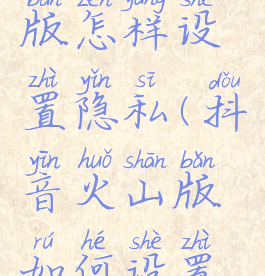 bǎn zěn yàng shè
版怎样设
zhì yǐn sī dǒu
置隐私(抖
yīn huǒ shān bǎn
音火山版
rú hé shè zhì
如何设置